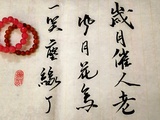 歲月催人老
風月花鳥
一笑塵緣了